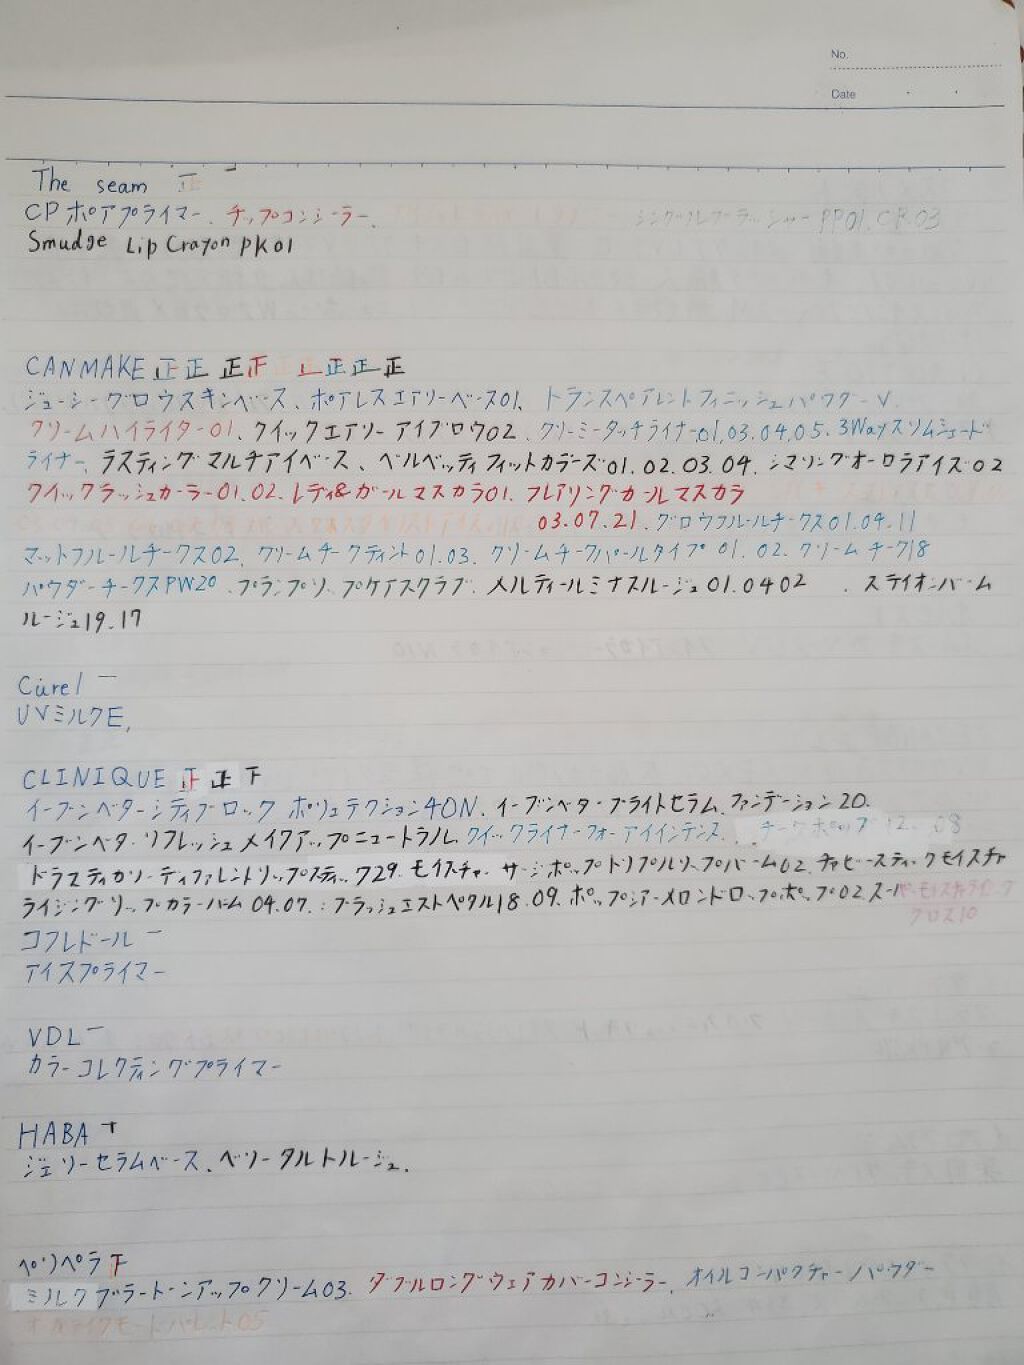 No.
Date
The seam 正
CPポアプライマー、チップコンシーラー、 PP01.CR.03
Smudge Lip Crayon PK01
CANMAKE 正正正正 正正正
ジューシーグロウスキンベース、ポアレスエアリーベース01、トランスペアレントフィニッシュパウダーV
クリームハイライター01、クイックエアリーアイブロウ02、クリーミータッチライナー01.03.04.05.3Wayスリムシェード
ライナー、ラスティングマルチアイベース、ベルベッティフィットカラーズ01.02.03.04、シマリングオーロラアイズ02
クイックラッシュカーラー01.02、レディ&ガールマスカラ01、フレアリングカールマスカラ
03.07.21、グロウフルールチークス01.04.11
マットフルールチークス02、クリームチークティント01.03、クリームチークパールタイプ01.02、クリームチーク18
パウダーチークスPW20、プランプリップケアスクラブ、メルティールミナスルージュ01.0402、ステイオンバーム
ルージュ19.17
Curel 一
UVミルクE、
CLINIQUE 正正下
イーブンベターシティブロックポリュテクション40N、イーブンベターブライトセラムファンデーション20.
イーブンベターリフレッシュメイクアップニュートラル、クイックライナーフォーアイインテンス、チークポップ12.08
ドラマティカリーディファレントリップスティック29、モイスチャーサージポップトリプルリップバーム02、チャビースティックモイスチャ
ライジングリップカラーバーム04.07、ブラッシュエストペクタル18.09、ポップシアーメロンドロップポップ02、スー
グロス10
コフレドール 一
アイズプライマー
VDL 一
カラーコレクティングプライマー
HABA T
ジェリーセラムベース、ベリータルトルージュ、
ペリペラ 下
ミルクブラートーンアップクリーム03、ダブルロングウェアカバーコンシーラー、オイルコンパクチャーパウダー
パレット05